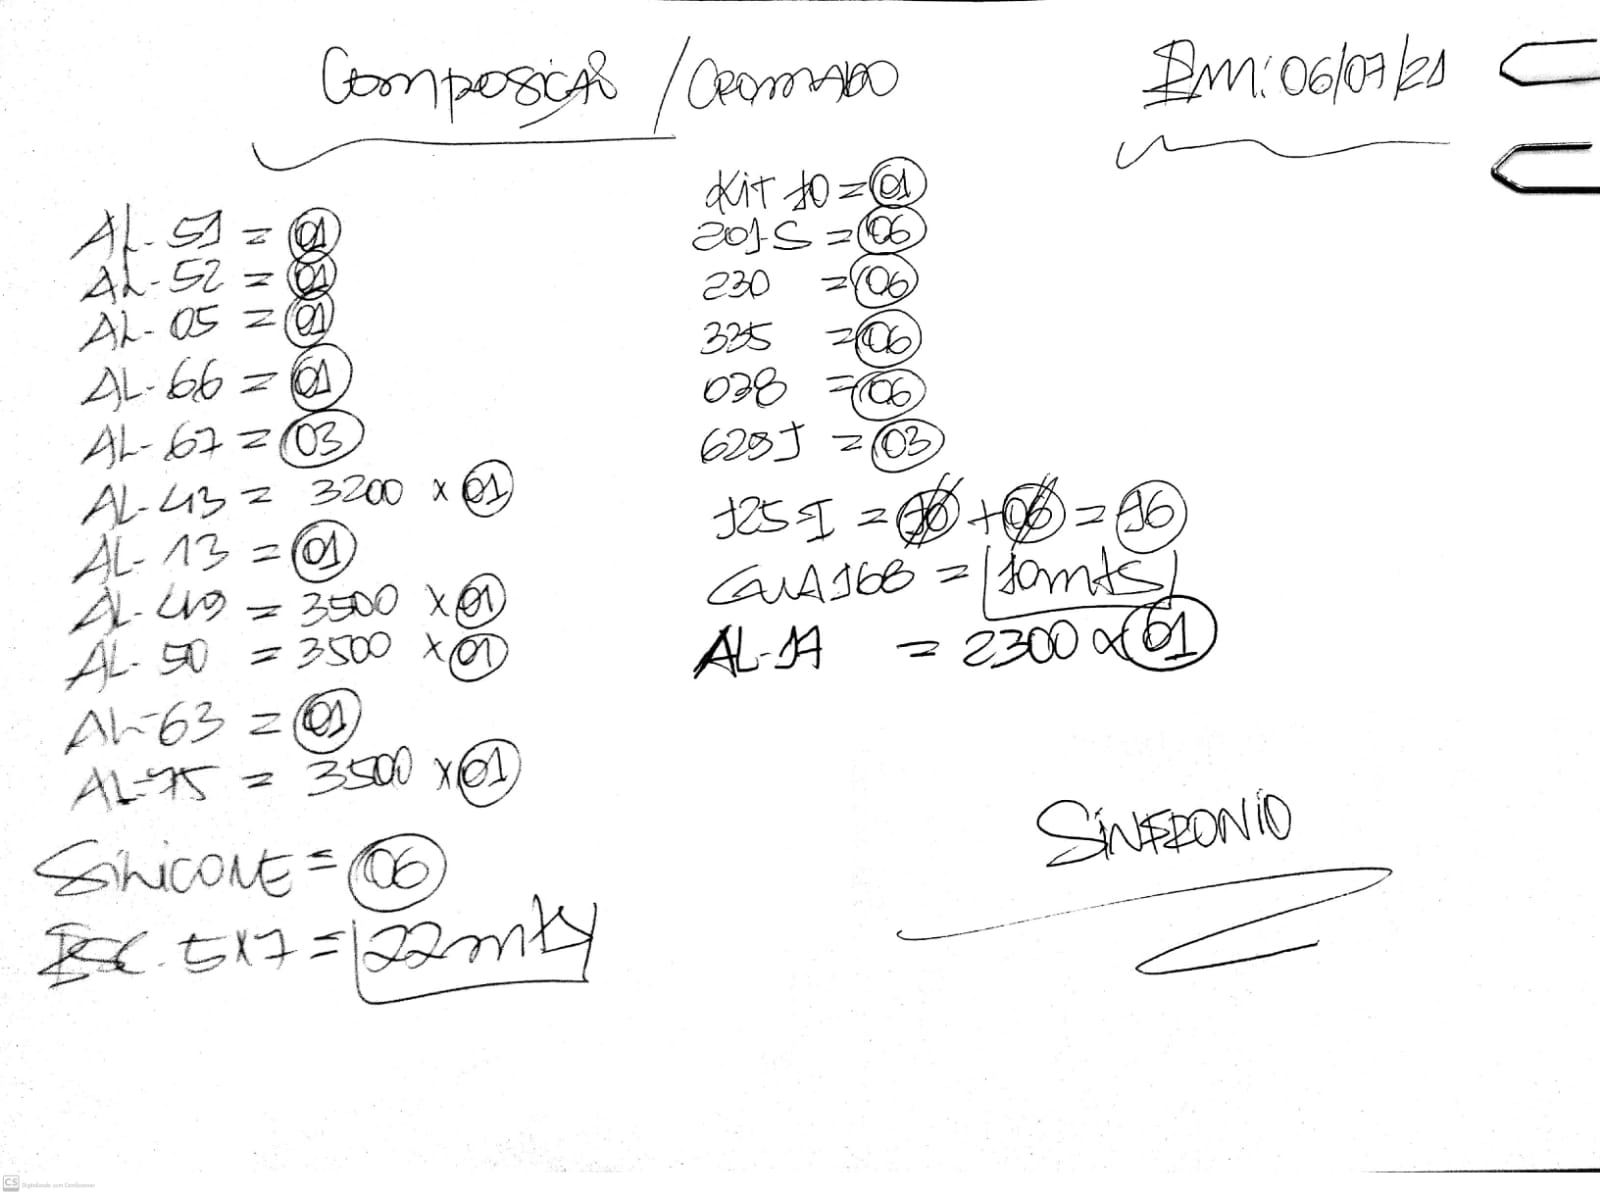 Composição / CROMADO
Em: 06/07/21
AL-51 = 01
AL-52 = 01
AL-05 = 01
AL-66 = 01
AL-67 = 03
AL-43 = 3200 x 01
AL-13 = 01
AL-49 = 3500 x 01
AL-50 = 3500 x 01
AL-63 = 01
AL-75 = 3500 x 01
SILICONE = 06
ESC. 5x7 = 22mts
KIT 10 = 01
201-S = 06
230 = 06
335 = 06
038 = 06
628J = 03
125-I = 10 + 06 = 16
GUA168 = 10mts
AL-17 = 2300 x 01
SINFRONIO
CS Digitalizado com CamScanner